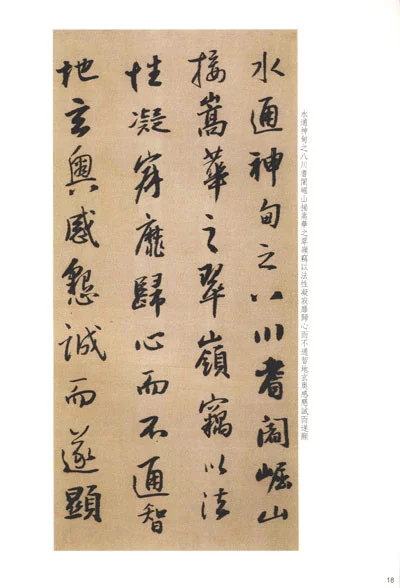 水通神甸之八川耆闍崛山
接嵩華之翠嶺竊以法
性凝寂靡歸心而不通智
地玄奥感懇誠而遂顯
水通神甸之八川耆闍崛山接嵩華之翠嶺竊以法性凝寂靡歸心而不通智地玄奥感懇誠而遂顯
18